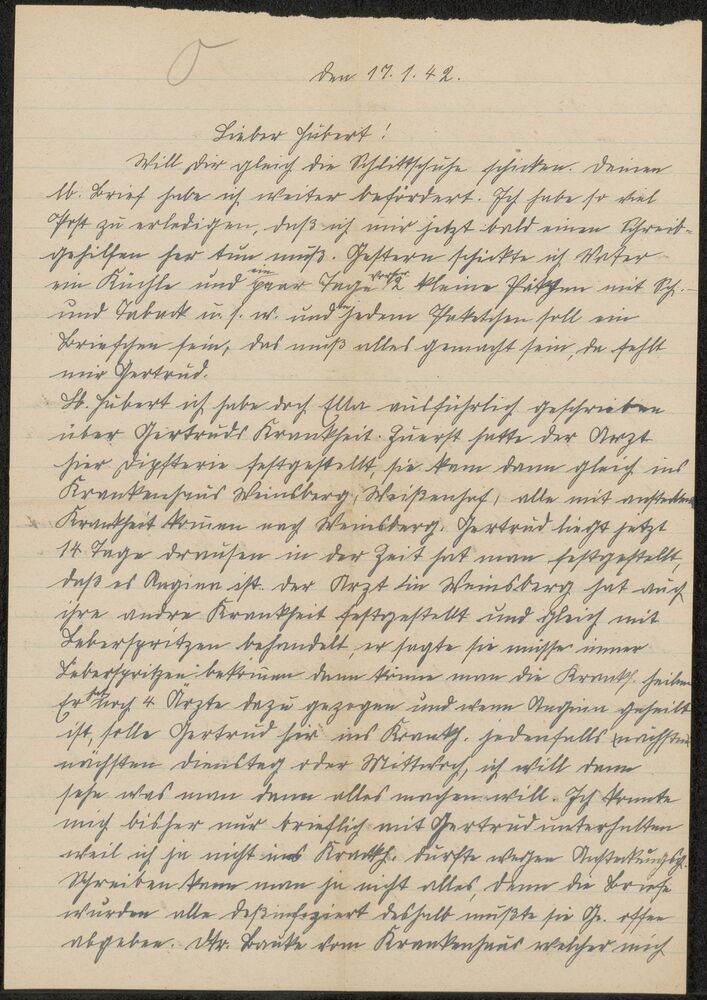 den 17.1.42.
Lieber Hubert!
Will Dir gleich die Schlittschuhe schicken. Deinen
lb. Brief habe ich weiter befördert. Ich habe so viel
Post zu erledigen, daß ich mir jetzt bald einen Schreib-
gehilfen her tun muß. Gestern schickte ich Vater
ein Küchle und ein paar Tage vorher 2 kleine Päckchen mit
und Taback u.s.w. und jedem Paketchen soll ein
Briefchen sein, das muß alles gemacht sein, da fehlt
mir Gertrud.
Lb. Hubert ich habe doch Ella ausführlich geschrieben
über Gertruds Krankheit. Zuerst hatte der Arzt
hier Dipfterie festgestellt, sie kam dann gleich ins
Krankenhaus Weinsberg, Weißenhof, alle mit
Krankheit kommen nach Weinsberg. Gertrud liegt jetzt
14 Tage drausen in der Zeit hat man festgestellt,
daß es Angina ist. Der Arzt in Weinsberg hat auch
ihre andre Krankheit festgestellt und gleich mit
Leberspritzen behandelt, er sagte sie müsse immer
Leberspritzen bekommen dann könne man die Krankh. heilen
Er hat noch 4 Ärzte dazu gezogen und wenn Angina geheilt
ist, solle Gertrud hier ins Krankh. jedenfalls
nächsten Dienstag oder Mittwoch, ich will dann
sehe was man dann alles machen will. Ich konnte
mich bisher nur brieflich mit Gertrud unterhalten
weil ich ja nicht ins Krankh. durfte wegen
Schreiben kann man ja nicht alles, denn die Briefe
wurden alle desinfiziert deshalb mußte sie Ge. offen
abgeben. Dr. vom Krankenhaus welcher mich